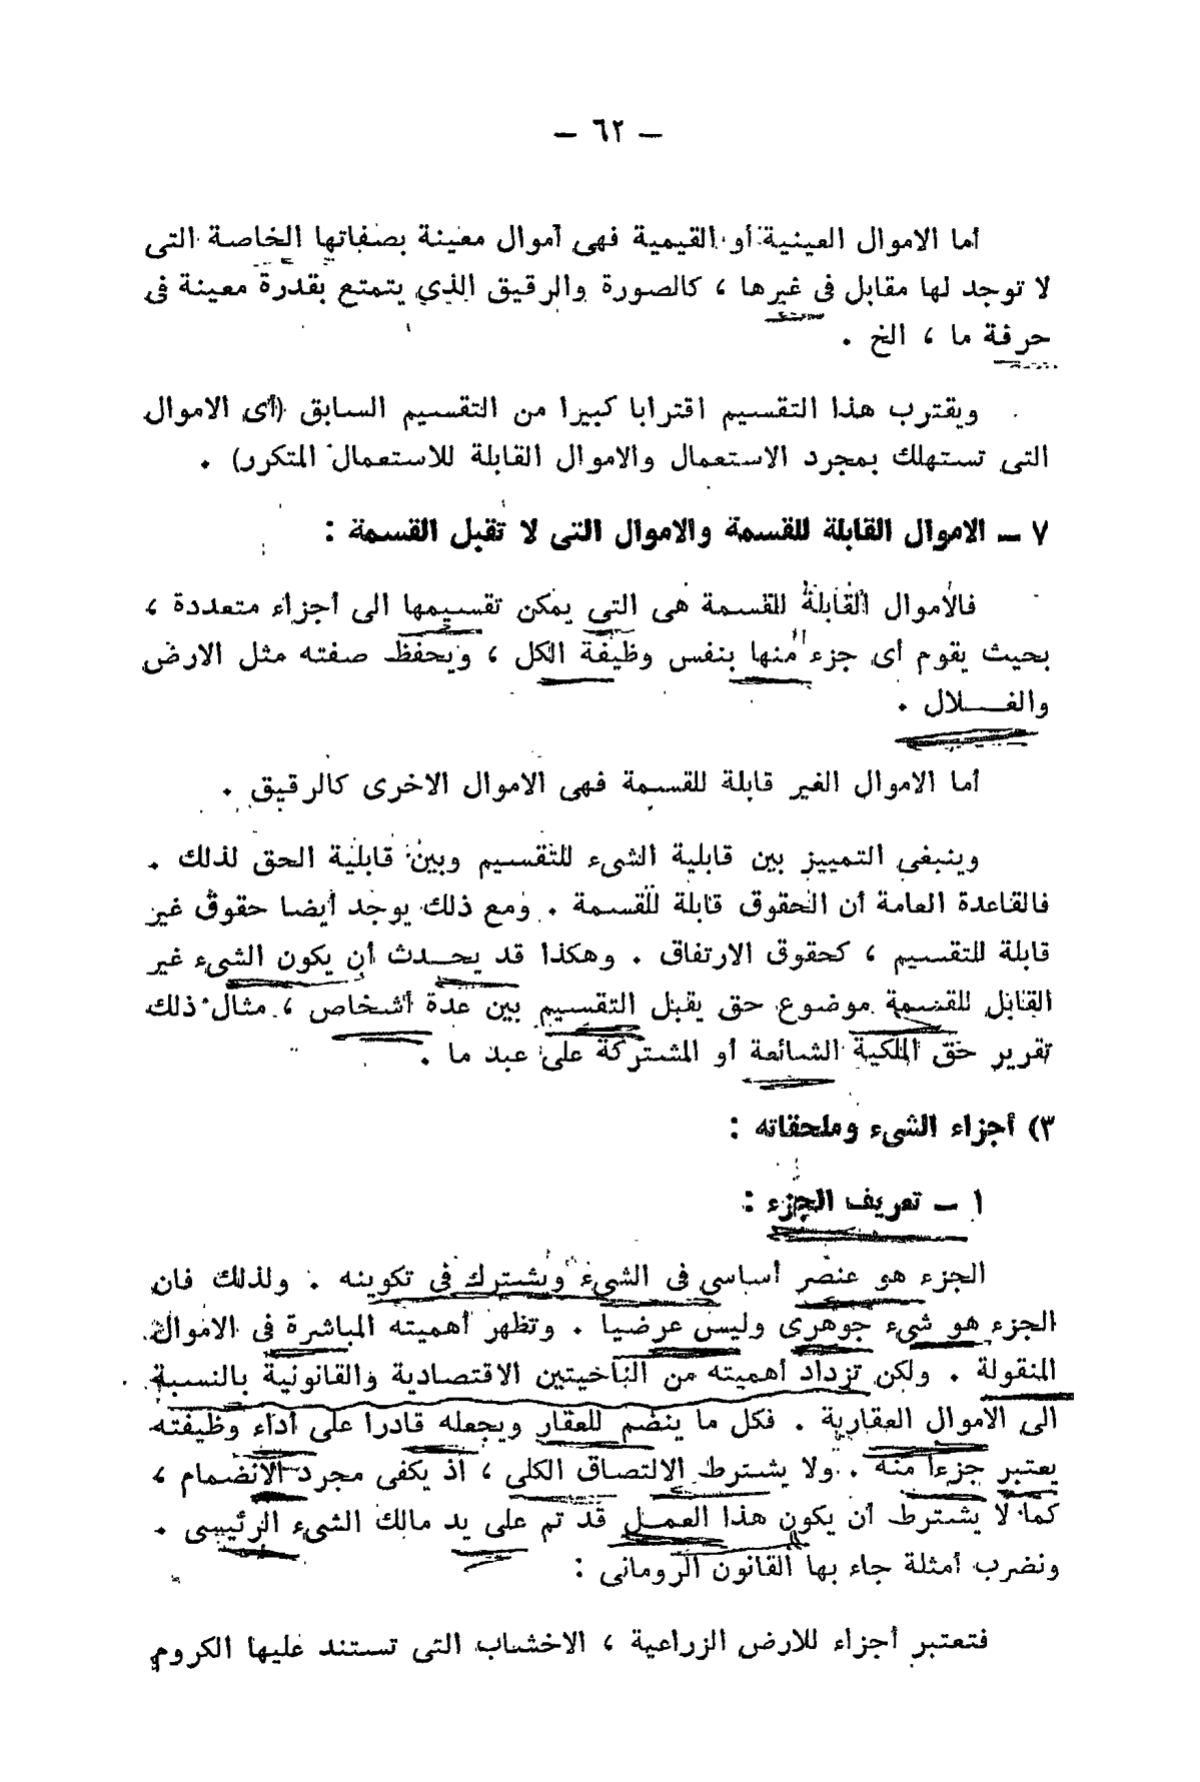 — ٦٢ —
أما الاموال العينية أو القيمية فهى أموال معينة بصفاتها الخاصة التى
لا توجد لها مقابل فى غيرها ، كالصورة والرقيق الذي يتمتع بقدرة معينة فى
حرفة ما ، الخ .
ويقترب هذا التقسيم اقترابا كبيرا من التقسيم السابق (أى الاموال
التى تستهلك بمجرد الاستعمال والاموال القابلة للاستعمال المتكرر) .
٧ — الاموال القابلة للقسمة والاموال التى لا تقبل القسمة :
فالأموال القابلة للقسمة هى التي يمكن تقسيمها الى أجزاء متعددة ،
بحيث يقوم أى جزء منها بنفس وظيفة الكل ، ويحفظ صفته مثل الارض
والغـــلال .
أما الاموال الغير قابلة للقسمة فهى الاموال الاخرى كالرقيق .
وينبغي التمييز بين قابلية الشىء للتقسيم وبين قابلية الحق لذلك .
فالقاعدة العامة أن الحقوق قابلة للقسمة . ومع ذلك يوجد أيضا حقوق غير
قابلة للتقسيم ، كحقوق الارتفاق . وهكذا قد يحـدث أن يكون الشىء غير
القابل للقسمة موضوع حق يقبل التقسيم بين عدة أشخاص ، مثال ذلك
تقرير حق الملكية الشائعة أو المشتركة على عبد ما .
٣) أجزاء الشىء وملحقاته :
١ — تعريف الجزء :
الجزء هو عنصر أساسي فى الشىء ويشترك فى تكوينه . ولذلك فان
الجزء هو شىء جوهرى وليس عرضيا . وتظهر أهميته المباشرة فى الاموال
المنقولة . ولكن تزداد أهميته من الناحيتين الاقتصادية والقانونية بالنسبة
الى الأموال العقارية . فكل ما ينضم للعقار ويجعله قادرا على أداء وظيفته
يعتبر جزءا منه . ولا يشترط الالتصاق الكلى ، اذ يكفى مجرد الانضمام ،
كما لا يشترط أن يكون هذا العمـل قد تم على يد مالك الشىء الرئيسى .
ونضرب أمثلة جاء بها القانون الرومانى :
فتعتبر أجزاء للارض الزراعية ، الاخشاب التى تستند عليها الكروم